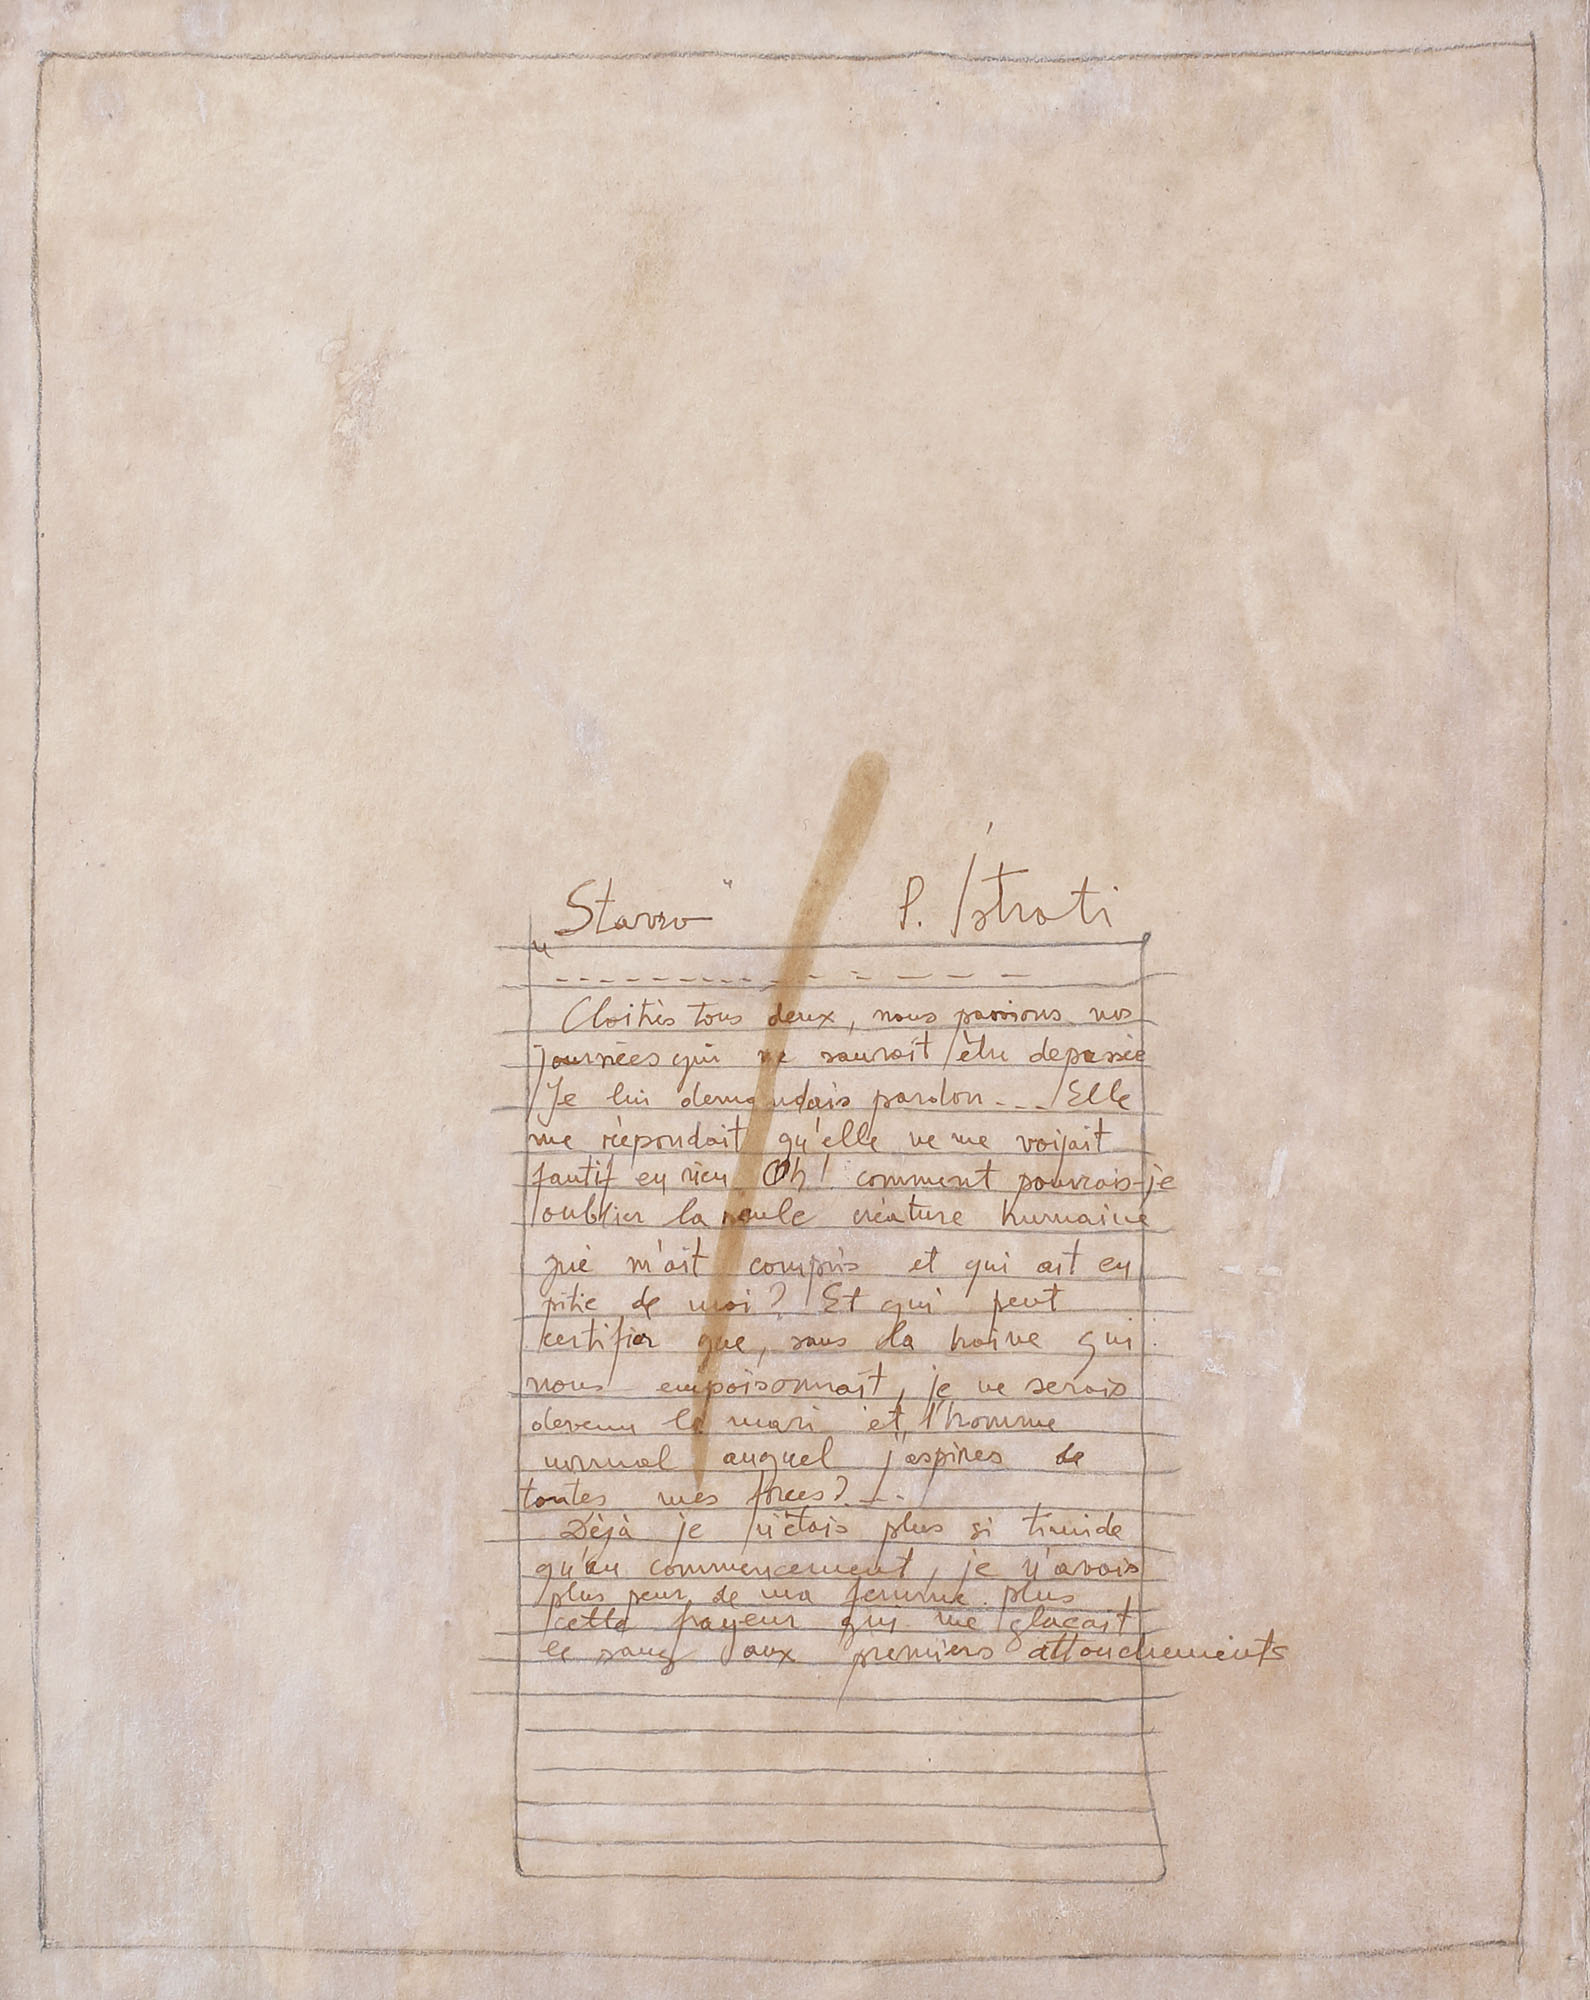 „Stavro" P. Istrati
Cloitrès tous deux, nous passions nos
journées qui ne saurait être depassée
Je lui demandais pardon ... Elle
me réepondait qu'elle ne me voijait
fautif en rien Oh! comment pouvrais-je
oublier la seule créature humaine
qui m'ait compris et qui ait eu
pitie de moi? Et qui peut
certifier que, sans la haine qui
nous empoisonnait, je ne serais
devenu le mari et l'homme
normal auquel j'aspires de
toutes mes forces? ...
Dèjà je n'étais plus si timide
qu'au commencement, je n'avais
plus peur de ma femme. plus
cette frayeur qui me glaçait
le sang aux premiers attouchements